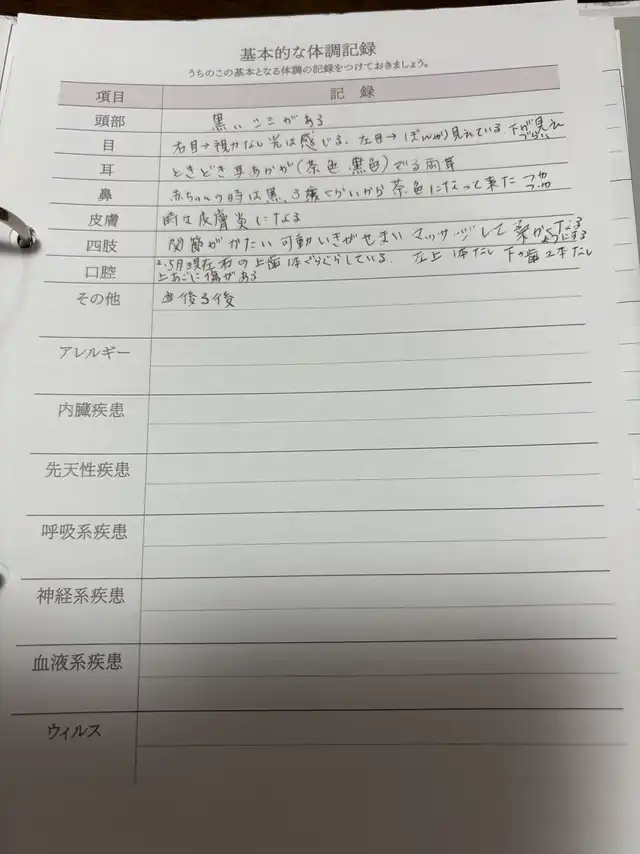 基本的な体調記録
うちのこの基本となる体調の記録をつけておきましょう。
項目 記 録
頭部 黒いシミがある
目 右目→視力なし光は感じる、左目→ぼんやり見れている、下が見えづらい
耳 ときどき耳あかが(茶色 黒色)でる両耳
鼻 赤ちゃんの時は黒、3歳くらいから茶色になって来た つやつや
皮膚 時は皮膚炎になる
四肢 関節がかたい 可動いきがせまい マッサージして柔かくなるようにする
口腔 2.5月現在右の上歯1本ぐらぐらしている、左上1本なし 下の歯2本なし
上あごに傷がある
その他
アレルギー
内臓疾患
先天性疾患
呼吸系疾患
神経系疾患
血液系疾患
ウィルス